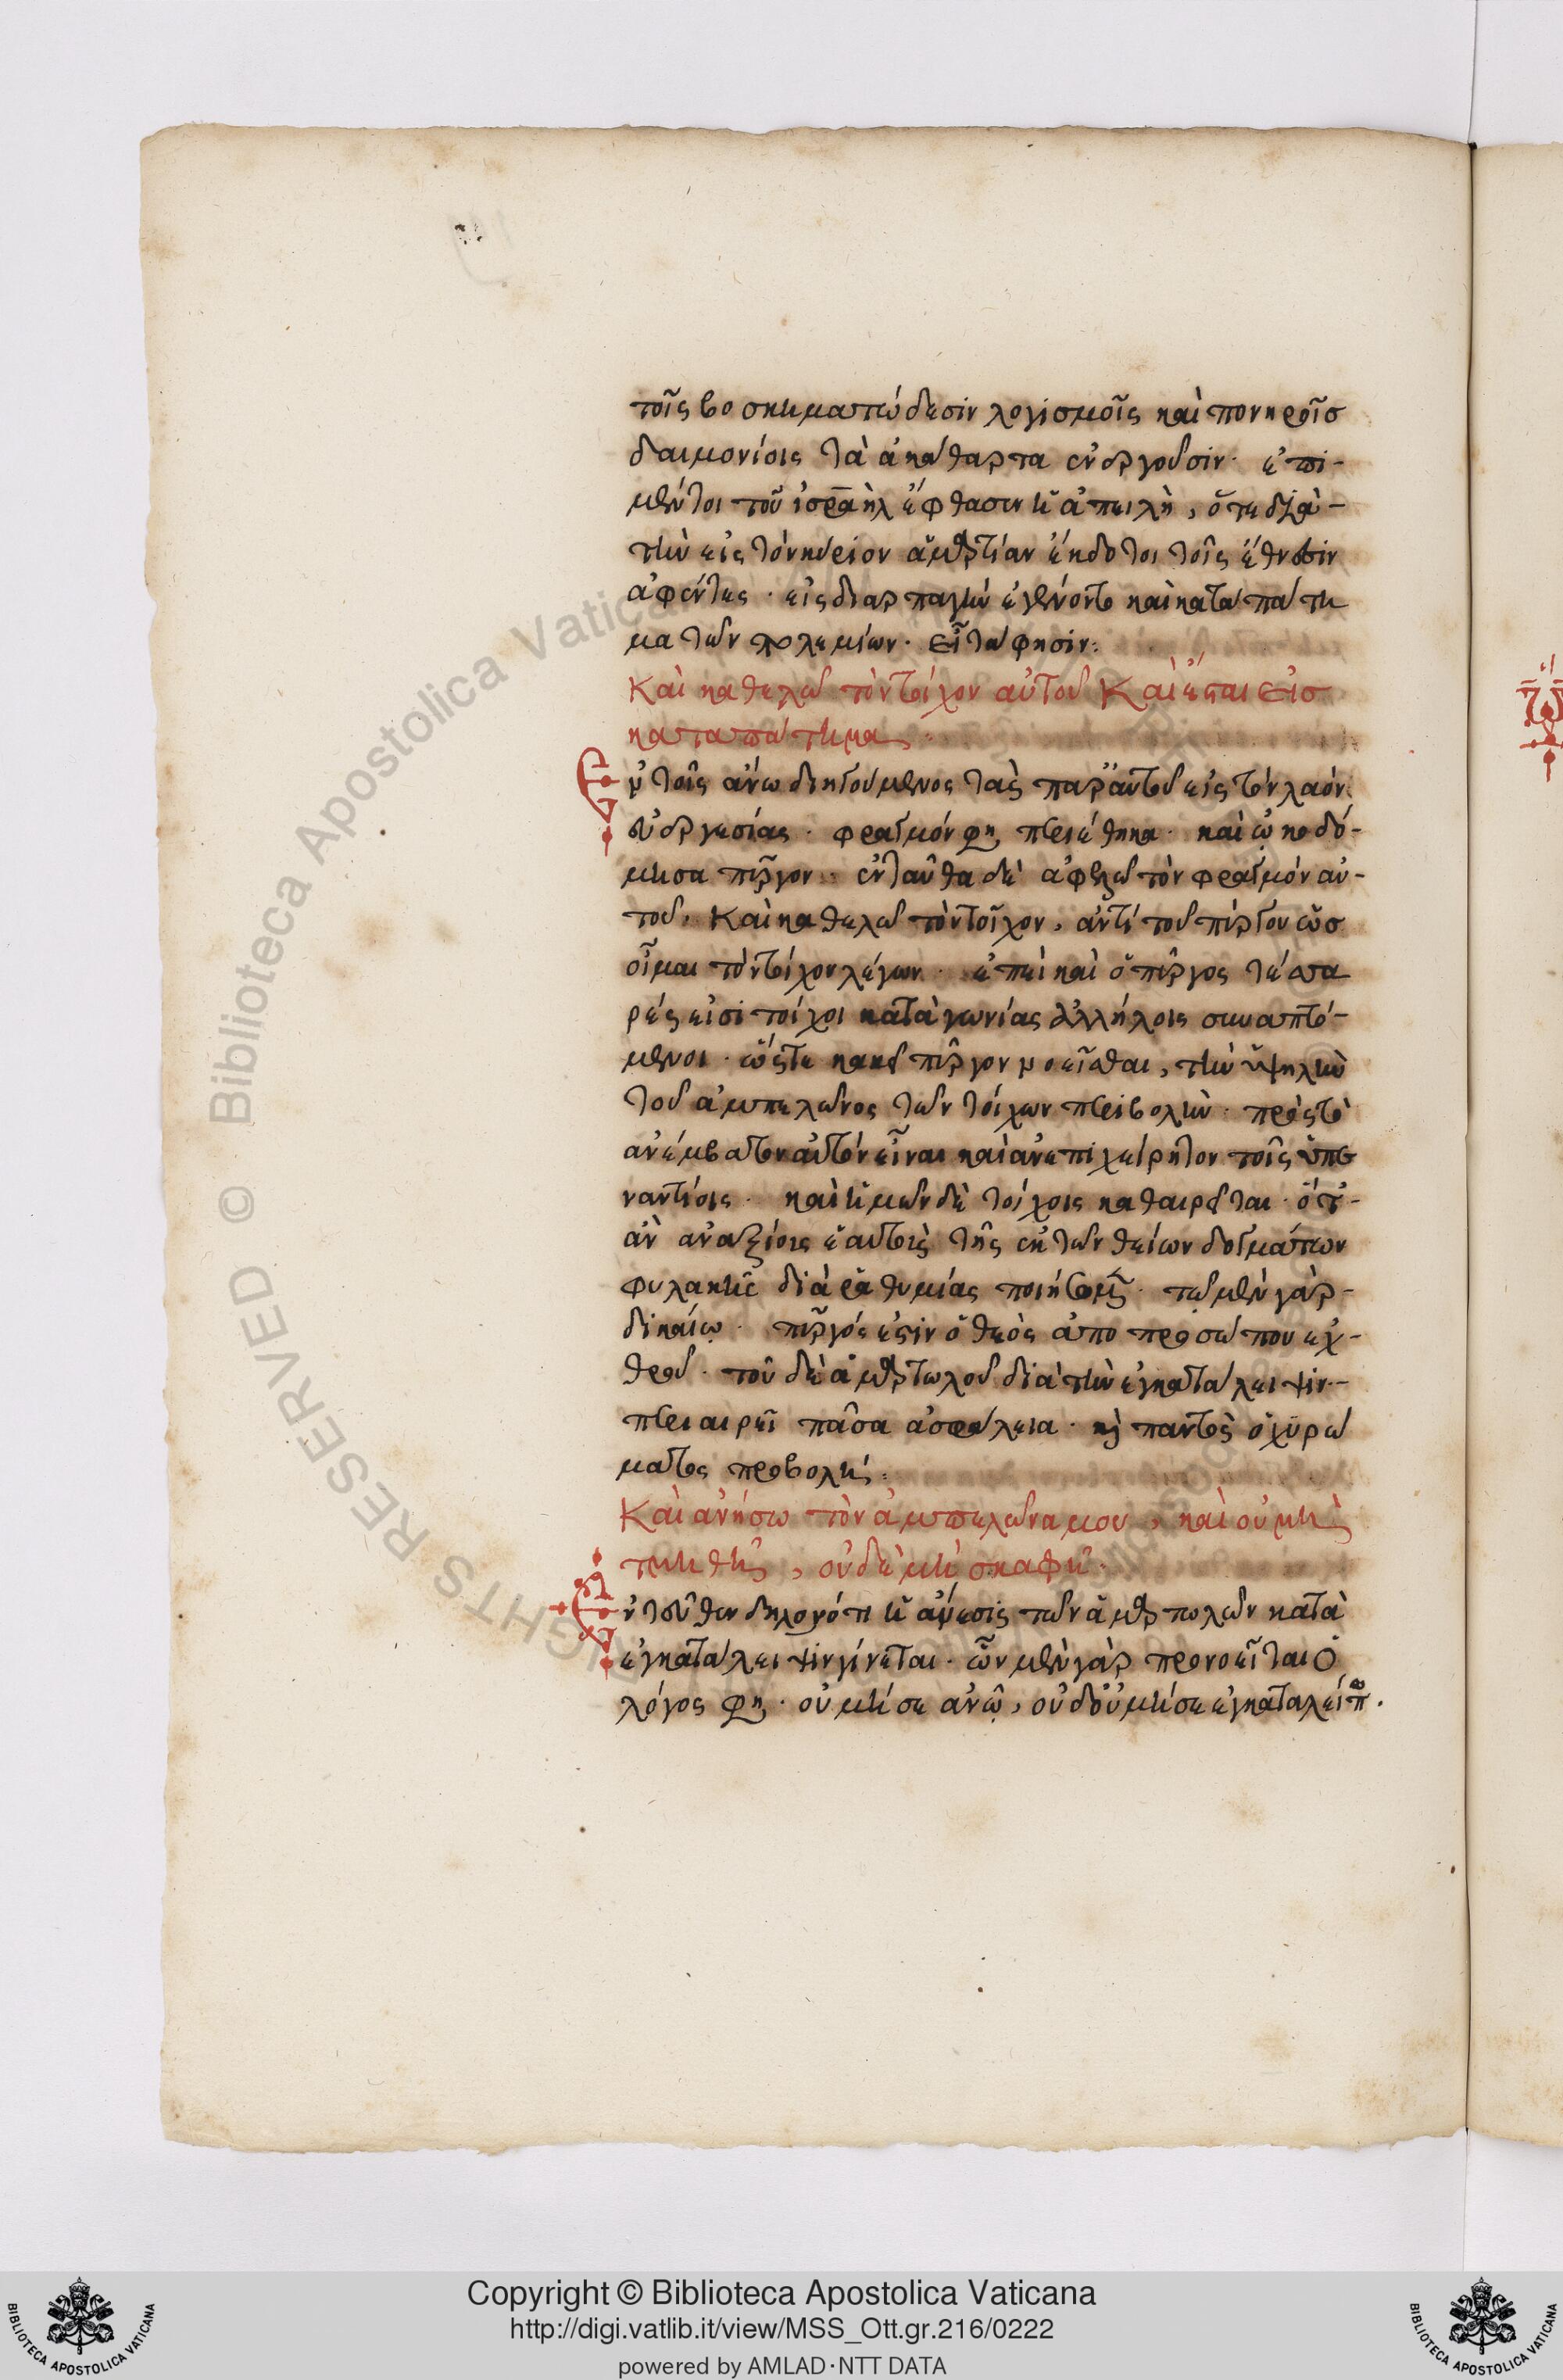 τοῖς βοσκηματώδεσιν λογισμοῖς καὶ πονηροῖσ
δαιμονίοις τὰ ἀκάθαρτα ἐνεργοῦσιν· ἐπὶ
μέντοι τοῦ ἰσραὴλ ἔφθασεν ἡ ἀπειλὴ, ὅτε διὰ
τὴν εἰς τὸν κύριον ἁμαρτίαν ἔκδοτοι τοῖς ἔθνεσιν
ἀφέντες· εἰς διαρπαγὴν ἐγένοντο καὶ καταπάτη
μα τῶν πολεμίων· εἶτα φησίν:
Καὶ καθελῶ τὸν τοίχον αὐτοῦ Καὶ ἔσται εἰσ
καταπάτημα
Ἐν τοῖς ἄνω διηγούμενος τὰς παρ' αὐτοῦ εἰς τὸν λαόν
εὐεργεσίας· φραγμόν φη περιέθηκα· καὶ ᾠκοδό-
μησα πῦργον· ἐνταῦθα δὲ ἀφελῶ τὸν φραγμόν αὐ-
τοῦ, Καὶ καθελῶ τὸν τοῖχον, ἀντί τοῦ πύργου ὥσ
οἶμαι τὸν τοίχον λέγων· ἐπεὶ καὶ ὁ πῦργος τέσσα
ρές εἰσι τοίχοι κατὰ γωνίας ἀλλήλοις συναπτό-
μενοι· ὥστε κακεῖ πῦργον νοεῖσθαι, τὴν ὑψηλὴν
τοῦ ἀμπελῶνος τῶν τοίχων περιβολὴν· πρὸς τὸ
ἀνέμβατον αὐτόν εἶναι καὶ ἀνεπιχείρητον τοῖς ὑπε
ναντίοις· καὶ ἡμῶν δὲ τοίχοις καθαιρεῖται· ὅτ'
ἂν ἀναξίοις ἑαυτοὺς τῆς ἐκ τῶν θείων δογμάτων
φυλακῆς διὰ ῥαθυμίας ποιήσωμεν· τῷ μὲν γὰρ
δικαίῳ· πῦργός ἐστιν ὁ θεὸς ἀπο προσώπου ἐχ-
θροῦ· τοῦ δὲ ἁμαρτωλοῦ διὰ τὴν ἐγκατάλειψιν
περιαιρεῖ πᾶσα ἀσφάλεια· καὶ παντὸς ὀχυρώ
ματος προβολή:
Καὶ ἀνήσω τὸν ἀμπελῶνα μου, καὶ οὐ μὴ
τμηθῇ, οὐδὲ μὴ σκαφῇ·
Ἐντεῦθεν δηλονότι ἡ ἄνεσις τῶν ἁμαρτωλῶν κατὰ
ἐγκατάλειψιν γίνεται· ὧν μὲν γὰρ προνοεῖται ὁ
λόγος φη· οὐ μή σε ἀνῶ, οὐδ' οὐ μή σε ἐγκαταλείπω.
Copyright © Biblioteca Apostolica Vaticana
http://digi.vatlib.it/view/MSS_Ott.gr.216/0222
powered by AMLAD·NTT DATA